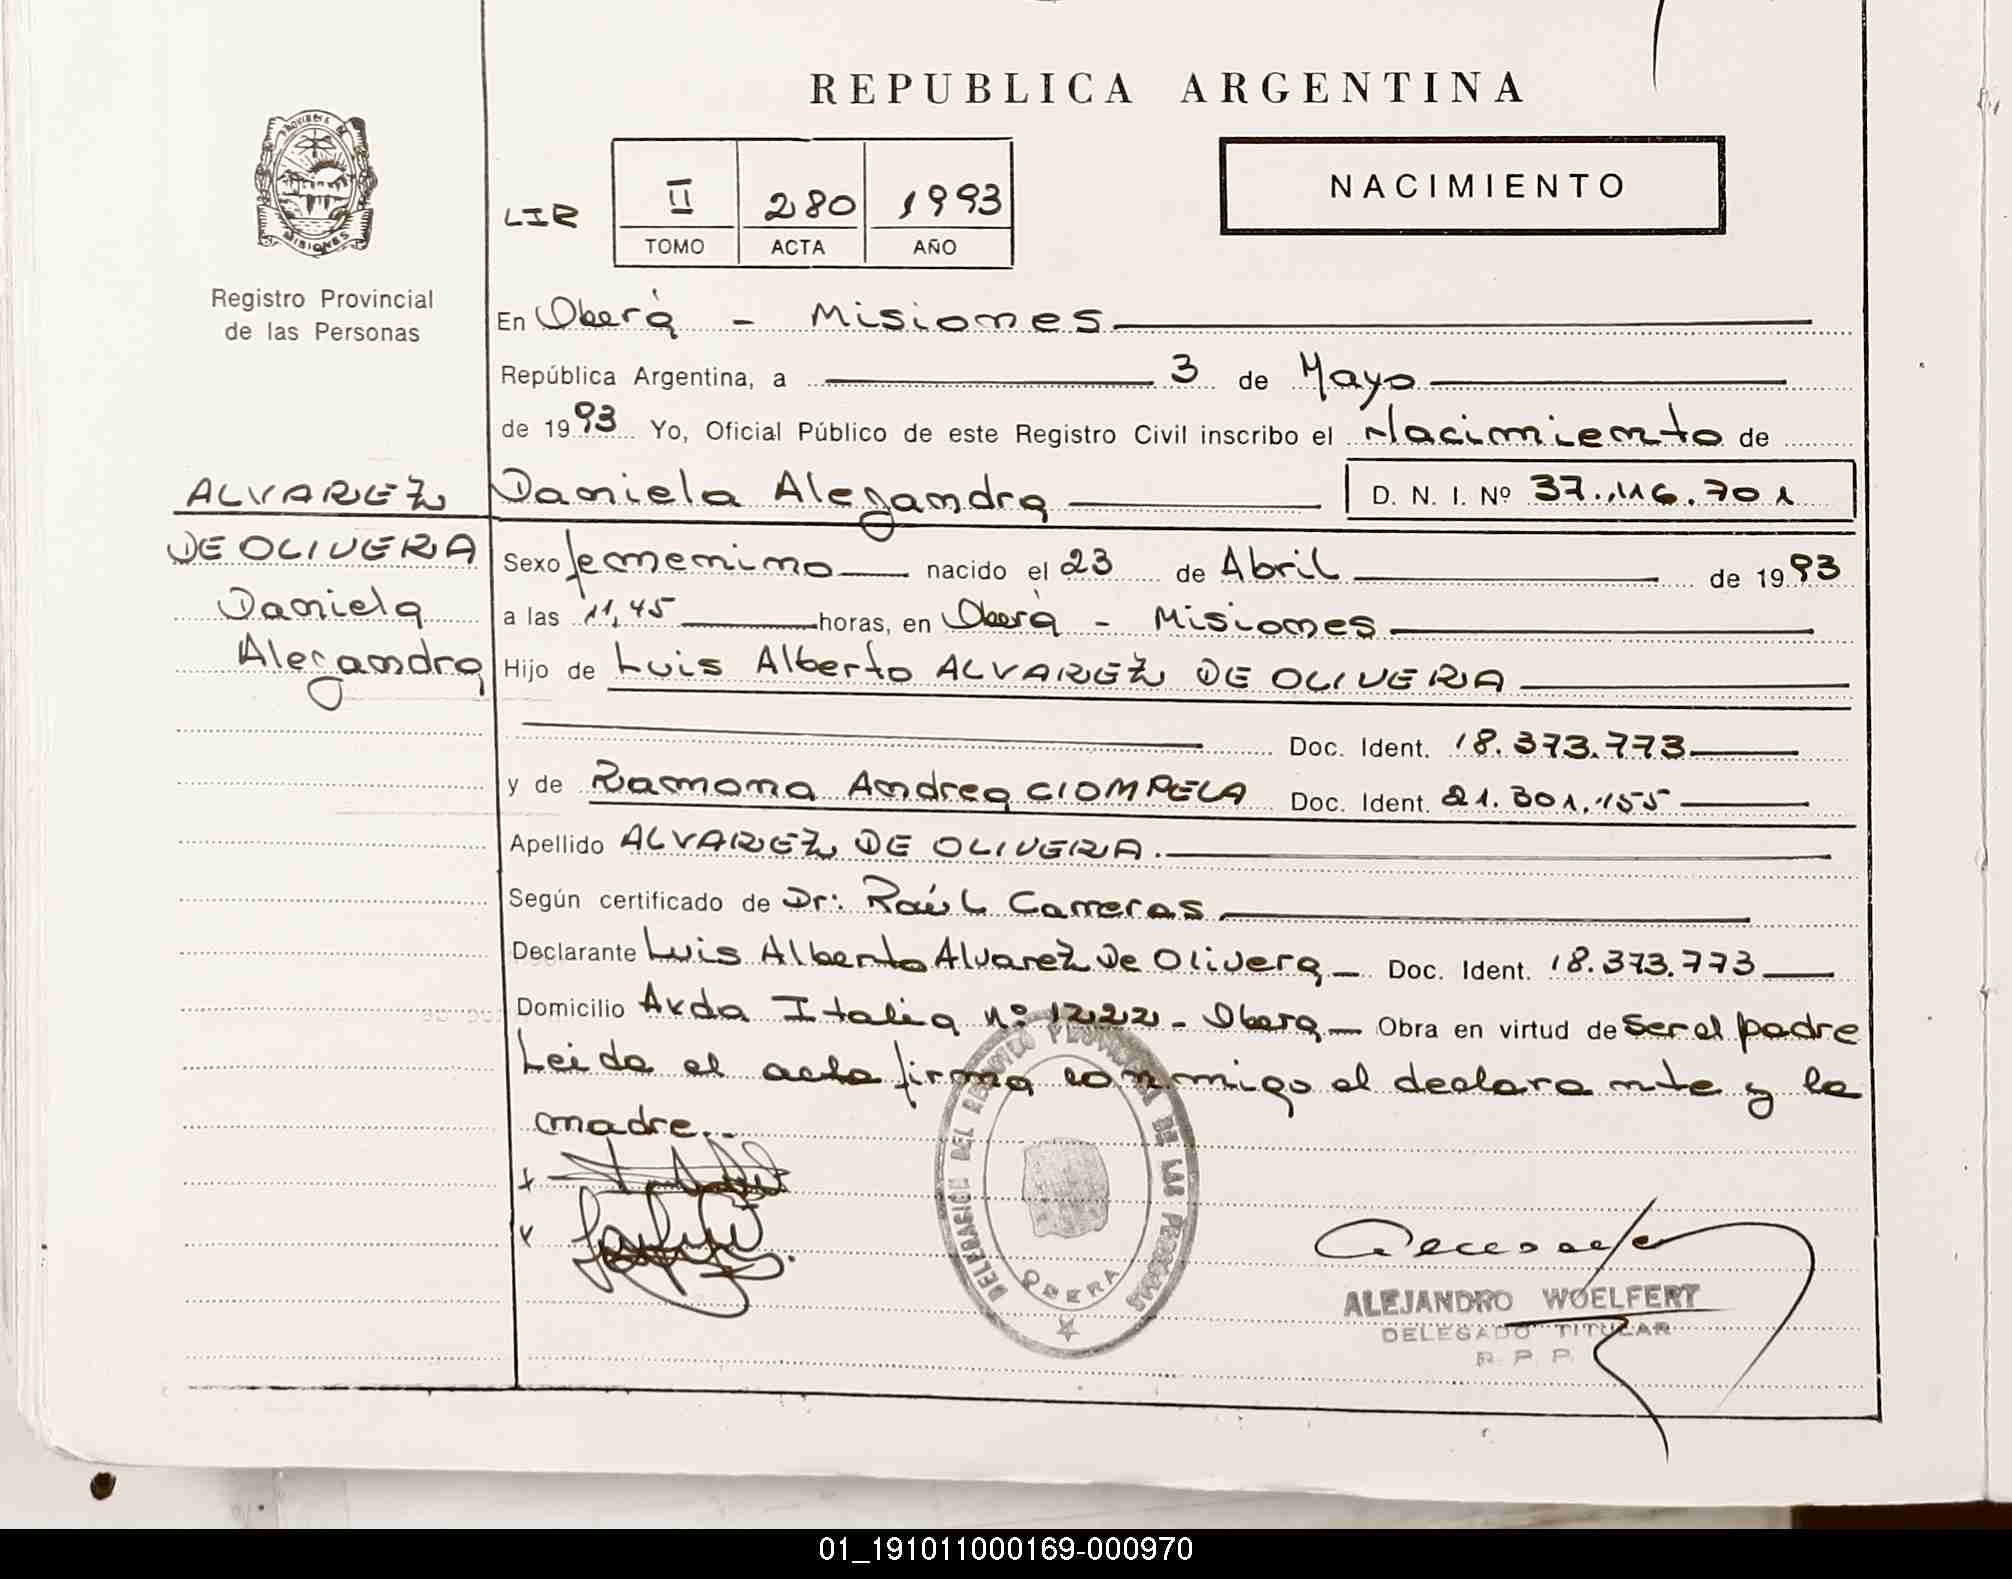 REPUBLICA ARGENTINA
PROVINCIA DE
MISIONES
Registro Provincial
de las Personas
LIR
II 280 1993
TOMO ACTA AÑO
NACIMIENTO
En Oberá - Misiones
República Argentina, a 3 de Mayo
de 1993 Yo, Oficial Público de este Registro Civil inscribo el Nacimiento de
ALVAREZ
DE OLIVERA
Daniela
Alejandra
Daniela Alejandra D. N. I. Nº 37.116.701
Sexo femenino nacido el 23 de Abril de 1993
a las 11,45 horas, en Oberá - Misiones
Hijo de Luis Alberto ALVAREZ DE OLIVERA
Doc. Ident. 18.373.773
y de Ramona Andrea CIOMPELA Doc. Ident. 21.301.155
Apellido ALVAREZ DE OLIVERA.
Según certificado de Dr: Raúl Carreras
Declarante Luis Alberto Alvarez De Olivera Doc. Ident. 18.373.773
Domicilio Avda Italia nº 1222 - Obera Obra en virtud de ser el padre
Leida el acta firma conmigo el declarante y la
madre..
DELEGACION DEL REGISTRO PROVINCIAL DE LAS PERSONAS
OBERA
ALEJANDRO WOELFERT
DELEGADO TITULAR
R. P. P.
01_191011000169-000970